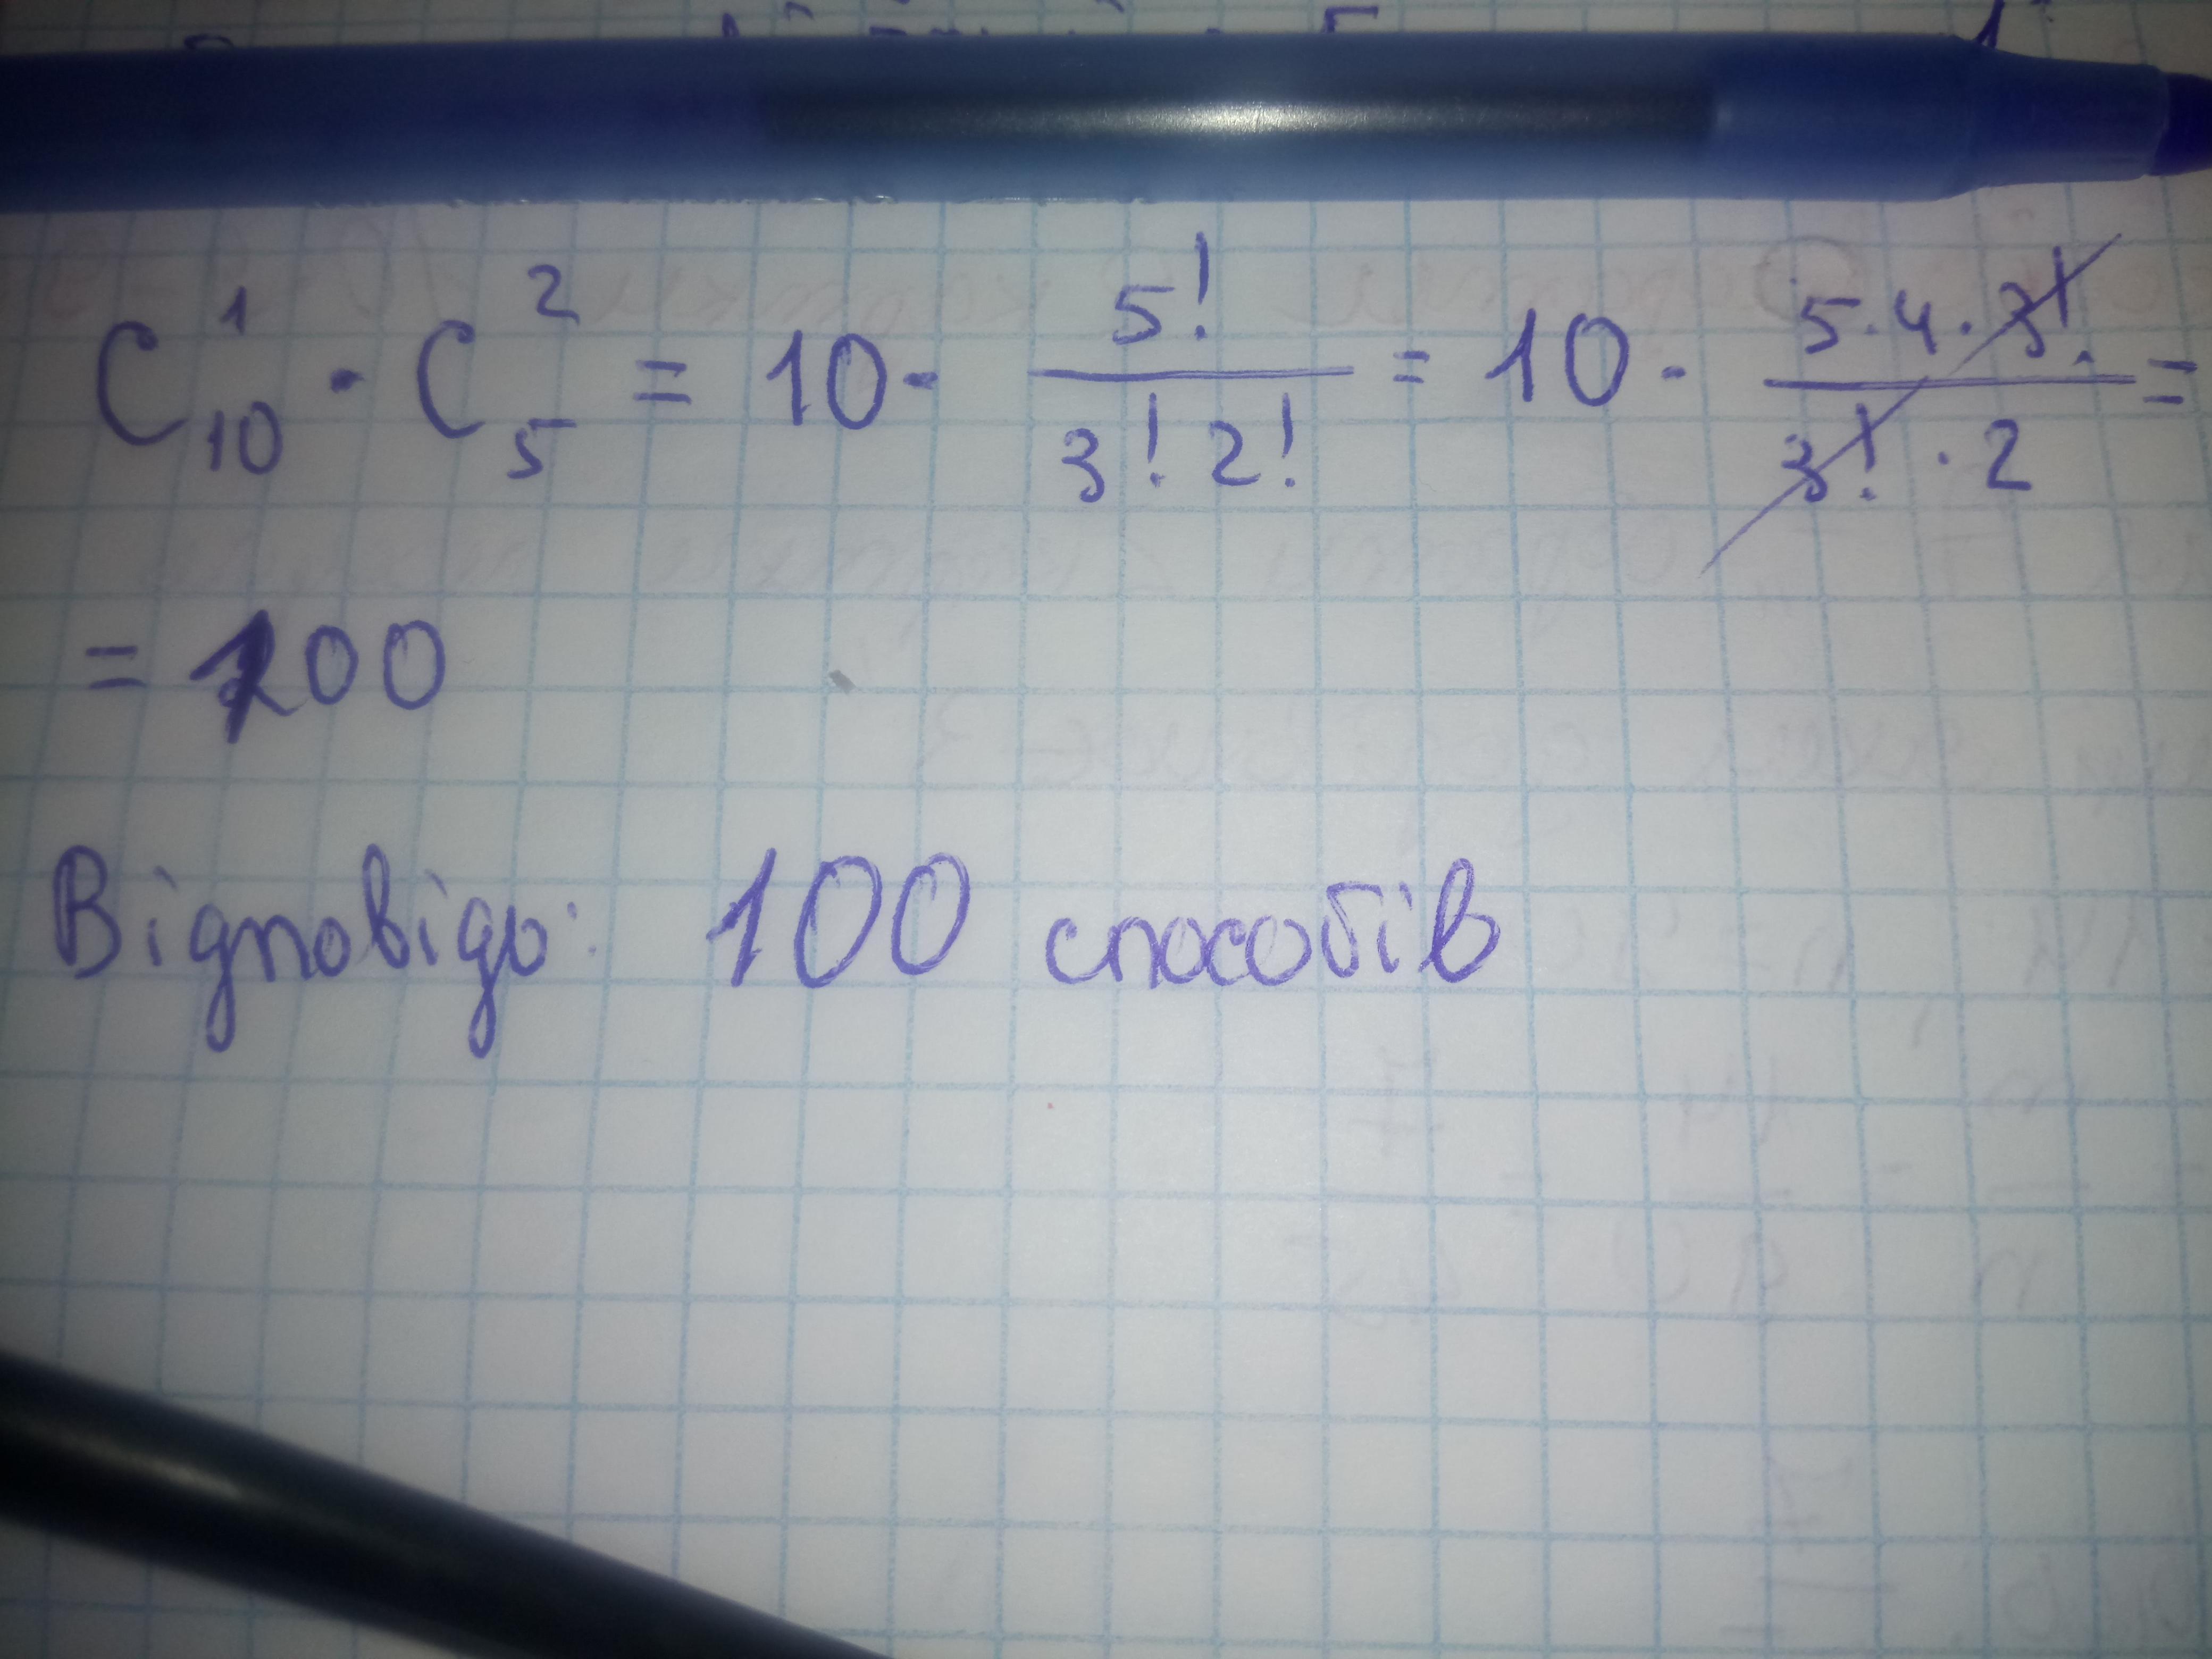 C₁₀¹ · C₅² = 10 · 5!/(3! 2!) = 10 · (5·4·3!)/(3!·2) =
= 100
Відповідь: 100 способів